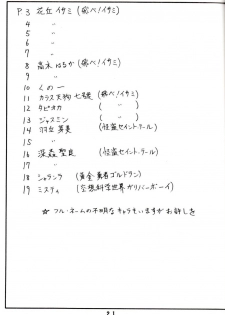 P3 花丘イサミ (飛べ!イサミ)
4 〃
5 〃
7 〃
8 高永はるか (飛べ!イサミ)
9 〃
10 くの一
11 カラス天狗七号 (飛べ!イサミ)
12 タピオカ ( 〃 )
13 ジャスミン ( 〃 )
14 羽丘芽美 (怪盗セイント・テール)
15 〃
16 深森聖良 (怪盗セイント・テール)
17 〃
18 シャランラ (黄金勇者ゴルドラン)
19 ミスティ (空想科学世界ガリバーボーイ)
☆ フル・ネームの不明なキャラもいますがお許しを
21